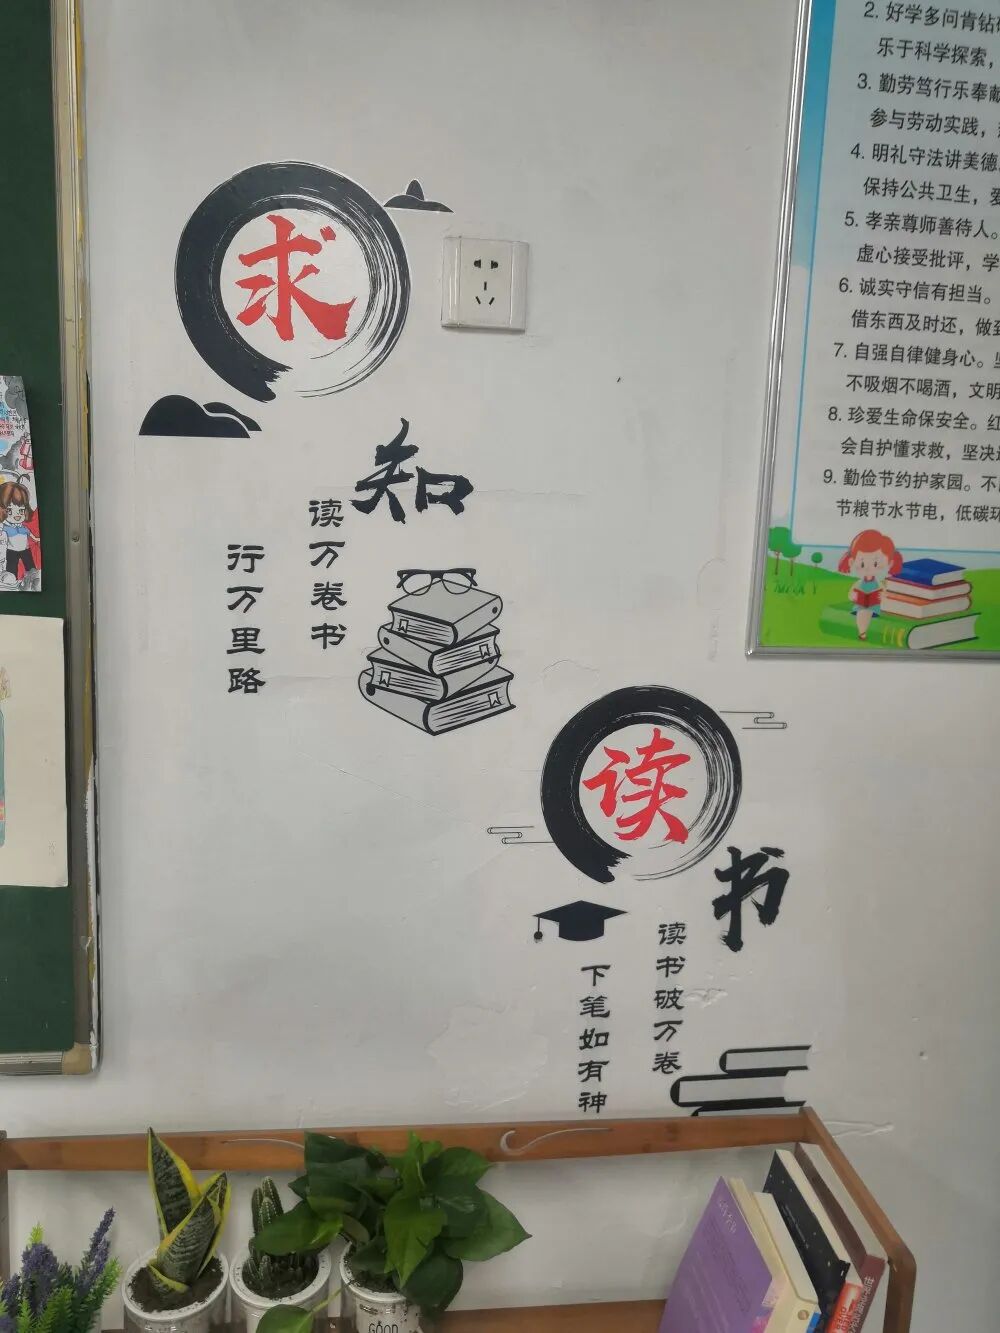 求
知
读万卷书
行万里路
读
书
读书破万卷
下笔如有神
2. 好学多问肯钻
乐于科学探索，
3. 勤劳笃行乐奉献
参与劳动实践，
4. 明礼守法讲美德
保持公共卫生，爱
5. 孝亲尊师善待人。
虚心接受批评，学
6. 诚实守信有担当。
借东西及时还，做到
7. 自强自律健身心。坚
不吸烟不喝酒，文明
8. 珍爱生命保安全。红
会自护懂求救，坚决
9. 勤俭节约护家园。不
节粮节水节电，低碳环
GOOD